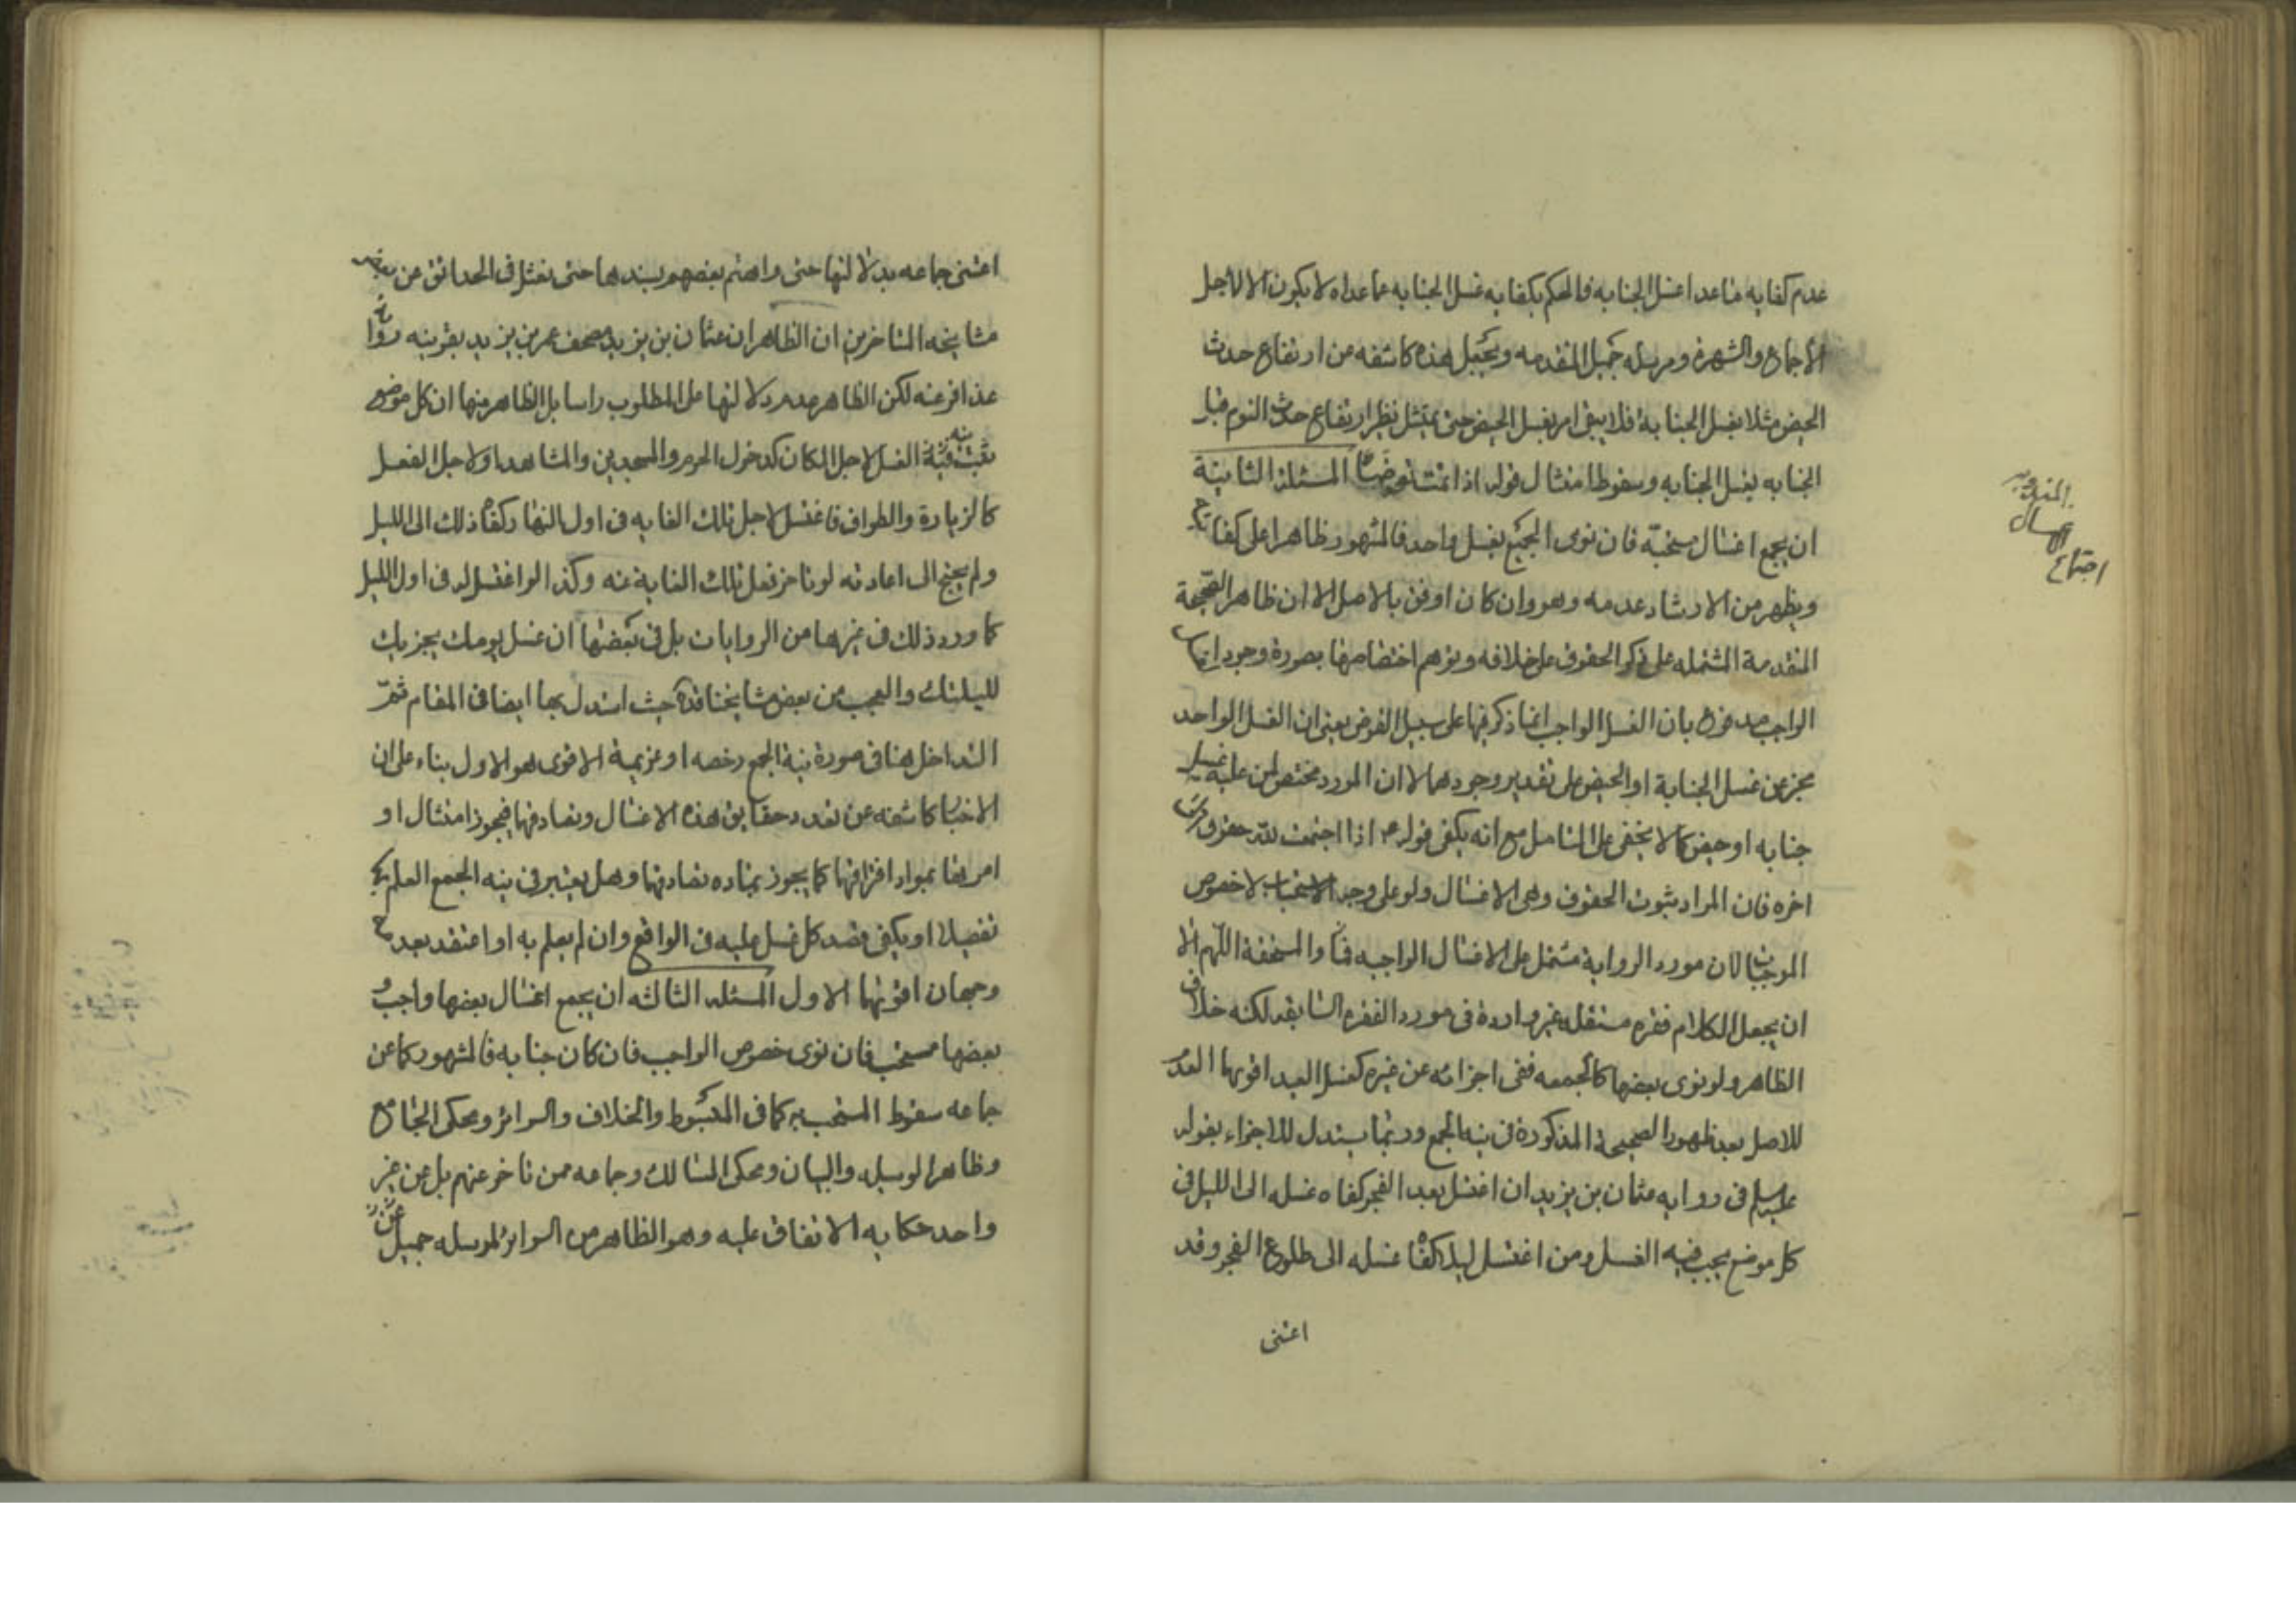 عدم كفايه ماعدا غسل الجنابه فالحكم بكفايه غسل الجنابه عما عداه لا يكون الا لاجل
الاجماع والشهرة ومرسله جميل المتقدمه ويجعل هذه كاشفه من ارتفاع حدث
الحيض مثلا بغسل الجنابة فلا يبقى امر بغسل الحيض حتى يمتثل نظير ارتفاع حدث النوم قبل
الجنابه بغسل الجنابه وسقوط امتثال قوله اذا نمت فتوضأ المسئلة الثانية
ان يجمع اغسال مستحبّة فان نوى الجميع بغسل واحد فالمشهور ظاهرا على كفايته
ويظهر من الارشاد عدمه وهو وان كان اوفق بالاصل الا ان ظاهر الصّحيحة
المتقدمة المشتمله على ذكر الحقوق على خلافه وتوهم اختصاصها بصورة وجود
الواجب مدفوع بان الغسل الواجب انما ذكر فيها على سبيل الفرض يعنى ان الغسل الواحد
مجز عن غسل الجنابة او الحيض على تقدير وجودهما لا ان المورد مختص بمن عليه غسل
جنابه او حيض كما لا يخفى على المتامل مع انه يكفى قوله ع اذا اجتمعت لله حقوق
اخره فان المراد بثبوت الحقوق وهى الاغسال ولو على وجه الاستحباب لا خصوص
الموجبات لان مورد الرواية مشتمل على الاغسال الواجبه والمستحقة اللّهم الا
ان يجعل الكلام فقره مستقله غير واردة فى مورد الفقره السابقه لكنه خلاف
الظاهر ولو نوى بعضها كالجمعه ففى اجزائه عن غيره كغسل العيد اقويهما العدم
للاصل بعد ظهور الصحيحة المذكورة فى نيه الجمع وربما يستدل للاجزاء بقوله
عليه السلم فى روايه عثمان بن يزيد ان اغتسل بعد الفجر كفاه غسله الى الليل فى
كل موضع يجب فيه الغسل ومن اغتسل ليلا كفاه غسله الى طلوع الفجر وقد
اعتنى
اجتماع
الاغسال
المندوبه
اعتنى جماعه بدلالتها حتى واهتم بعضهم بسندها حتى نقل فى الحدائق عن بعض
مشايخه المتاخرين ان الظاهر ان عثمان بن يزيد مصحف عمر بن يزيد بقرينه رواية
عذافر عنه لكن الظاهر عدم دلالتها على المطلوب راسا بل الظاهر منها ان كل موضع
ثبت فيه الغسل لاجل المكان كدخول الحرم والمسجدين والمشاهد او لاجل الفعل
كالزيارة والطواف فاغتسل لاجل تلك الغايه فى اول النهار كفاه ذلك الى الليل
ولم يحتج الى اعادته لو تاخر فعل تلك الغاية عنه وكذا لو اغتسل له فى اول الليل
كما ورد ذلك فى غيرها من الروايات بل فى بعضها ان غسل يومك يجزيك
لليلتك والعجب من بعض مشايخنا قده حيث استدل بها ايضا فى المقام ثمّ
التداخل هنا فى صورة نية الجمع رخصه او عزيمة الاقوى هو الاول بناء على ان
الاخبار كاشفه عن تعدد حقايق هذه الاغسال وتصادقها فيجوز امتثال او
امرها بمواد افتراقها كما يجوز بماده تصادقها وهل يعتبر فى نيه الجمع العلم بها
تفصيلا او يكفى قصد كل غسل عليه فى الواقع وان لم يعلم به او اعتقد بعدمه
وجهان اقويهما الاول المسئله الثالثه ان يجمع اغسال بعضها واجب و
بعضها مستحب فان نوى خصوص الواجب فان كان جنابه فالمشهور كما عن
جماعه سقوط المستحب به كما فى المبسوط والخلاف والسرائر ومحكى الجامع
وظاهر الوسيله والبيان ومحكى المسالك وجماعه ممن تاخر عنهم بل عن غير
واحد حكايه الاتفاق عليه وهو الظاهر من السرائر لمرسله جميل